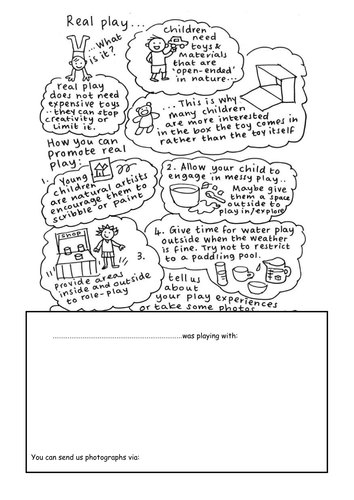 Real play...
...What
is it?
children
need
toys &
materials
that are
'open-ended'
in nature...
real play
does not need
expensive toys
...they can stop
creativity or
limit it.
... This is why
many children
are more interested
in the box the toy comes in
rather than the toy itself
How you can
promote real
play:
1. Young
children
are natural artists
encourage them to
scribble or paint
2. Allow your child to
engage in messy play...
Maybe give
them a space
outside to
play in/explore
shop
3.
provide areas
inside and outside
to role-play
4. Give time for water play
outside when the weather
is fine. Try not to restrict
to a paddling pool.
tell us
about
your play experiences
or take some photos
......................................................was playing with:
You can send us photographs via: